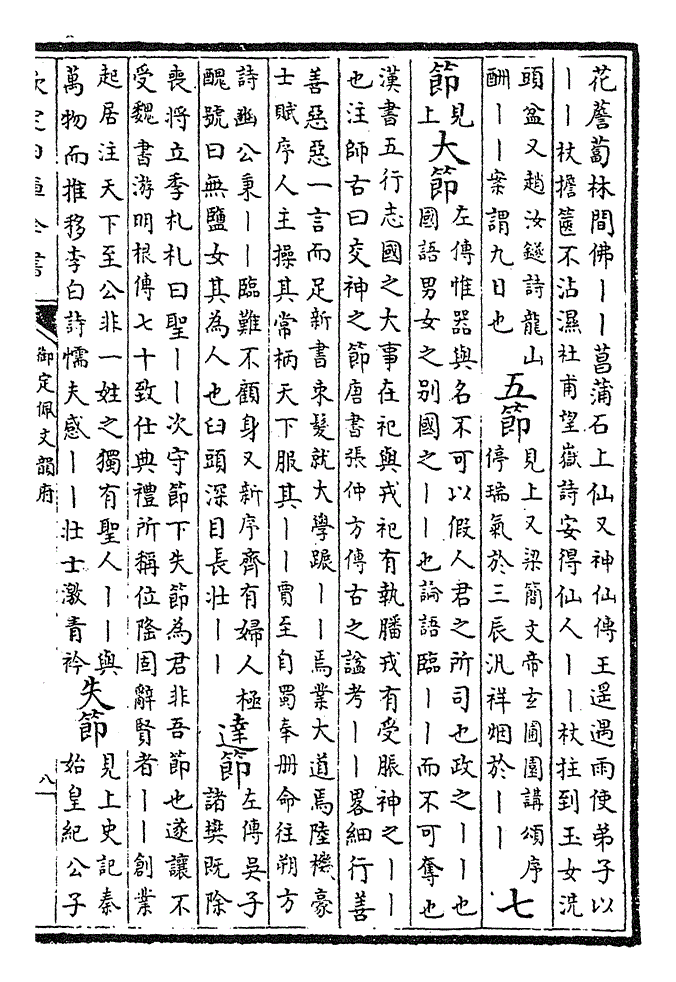 花簷蔔林間佛丨丨菖蒲石上仙又神仙傳王遥遇雨使弟子以
丨丨杖擔篋不沾濕杜甫望嶽詩安得仙人丨丨杖拄到玉女洗
頭盆又趙汝鐩詩龍山
酬丨丨案謂九日也
五節
見上又梁簡文帝玄圃園講頌序
停瑞氣於三辰汎祥烟於丨丨
七
節
見
上
大節
左傳惟器與名不可以假人君之所司也政之丨丨也
國語男女之别國之丨丨也論語臨丨丨而不可奪也
漢書五行志國之大事在祀與戎祀有執膰戎有受脤神之丨丨
也注師古曰交神之節唐書張仲方傳古之諡考丨丨畧細行善
善惡惡一言而足新書束髮就大學蹍丨丨焉業大道焉陸機豪
士賦序人主操其常柄天下服其丨丨賈至自蜀奉册命往朔方
詩豳公秉丨丨臨難不顧身又新序齊有婦人極
醜號曰無鹽女其為人也臼頭深目長壮丨丨
達節
左傳吳子
諸樊既除
喪將立季札札曰聖丨丨次守節下失節為君非吾節也遂讓不
受魏書游明根傳七十致仕典禮所稱位隆固辭賢者丨丨創業
起居注天下至公非一姓之獨有聖人丨丨與
萬物而推移李白詩懦夫感丨丨壯士激青衿
失節
見上史記秦
始皇紀公子
欽定四庫全書
御定佩文韻府
八